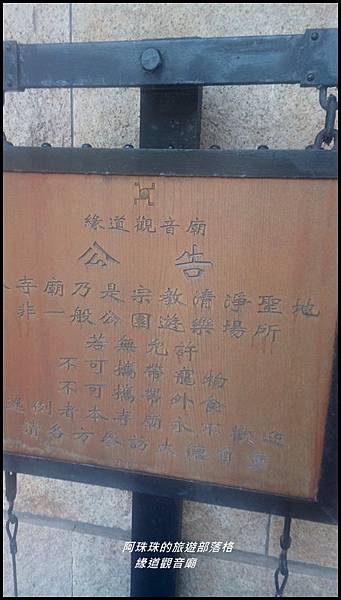 緣道觀音廟
公告
寺廟乃是宗教清淨聖地
非一般公園遊樂場所
若無允許
不可攜帶寵物
不可攜帶外食
違例者本寺廟永不歡迎
各方參訪大德自重
阿珠珠的旅遊部落格
緣道觀音廟